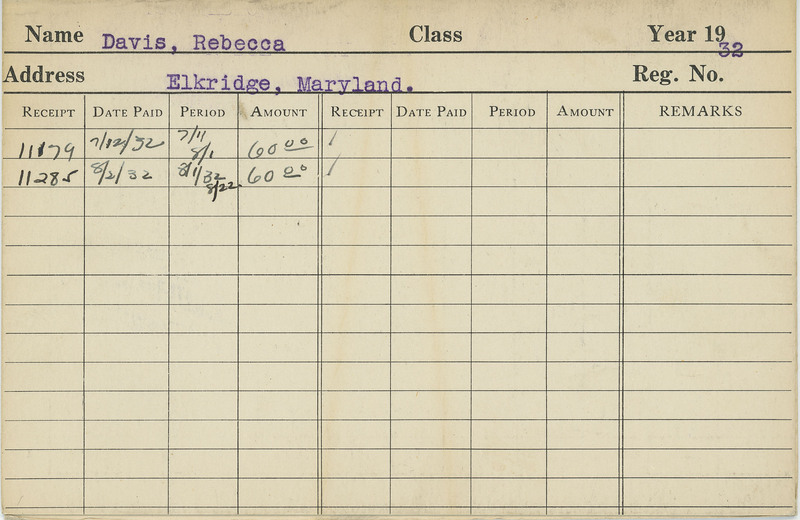 Name Davis, Rebecca Class Year 1932
Address Elkridge, Maryland. Reg. No.
RECEIPT DATE PAID PERIOD AMOUNT RECEIPT DATE PAID PERIOD AMOUNT REMARKS
11179 7/12/32 7/11 8/1 60 00 /
11285 8/2/32 8/1/32 8/22. 60 00 /